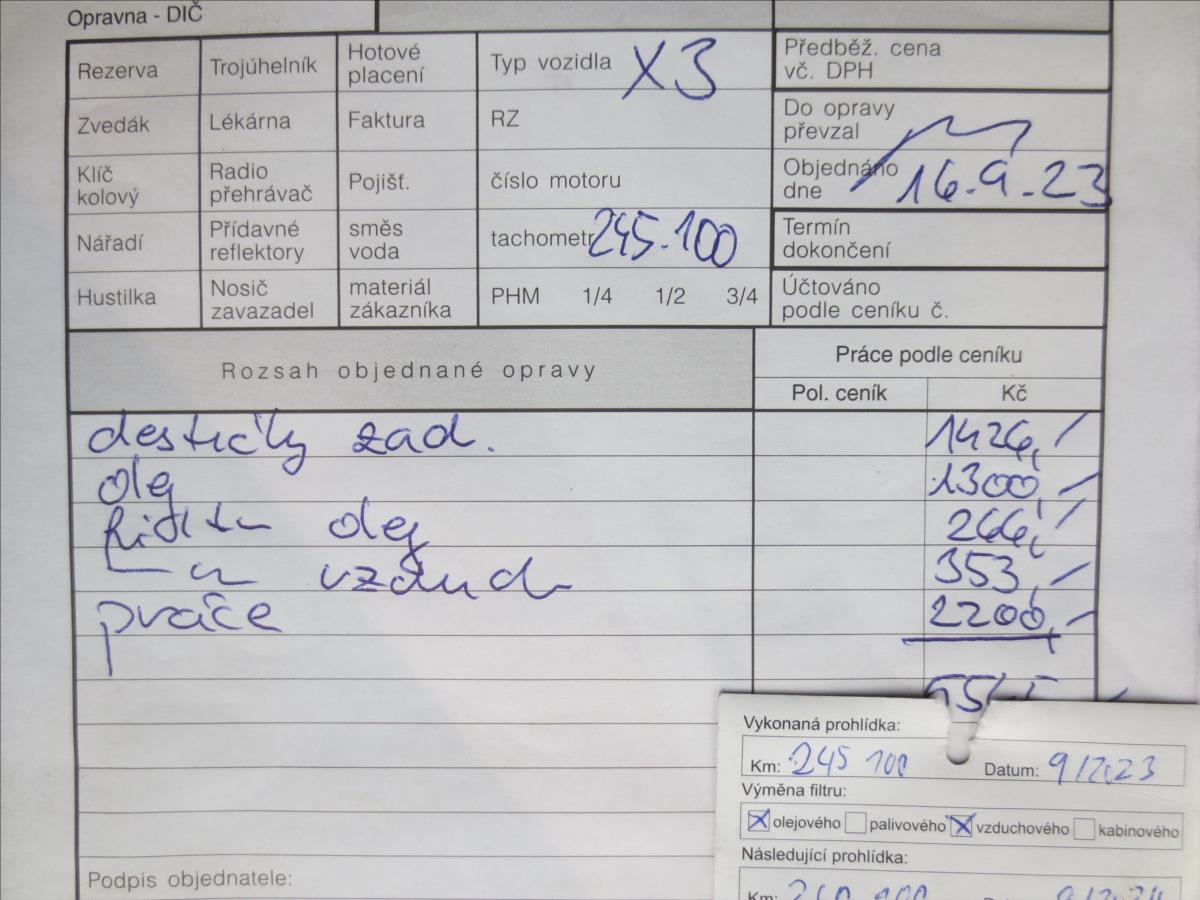 Opravna - DIČ
Rezerva Trojúhelník Hotové placení Typ vozidla X3 Předběž. cena vč. DPH
Zvedák Lékárna Faktura RZ Do opravy převzal
Klíč kolový Radio přehrávač Pojišť. číslo motoru Objednáno dne 16.9.23
Nářadí Přídavné reflektory směs voda tachometr 245.100 Termín dokončení
Hustilka Nosič zavazadel materiál zákazníka PHM 1/4 1/2 3/4 Účtováno podle ceníku č.
Rozsah objednané opravy Práce podle ceníku
Pol. ceník Kč
destičky zad. 1426,-
olej 1300,-
filtr olej 266,-
vzduch 353,-
práce 2200,-
Vykonaná prohlídka:
Km: 245 100 Datum: 9/2023
Výměna filtru:
olejového palivového vzduchového kabinového
Následující prohlídka:
Km:
Podpis objednatele: